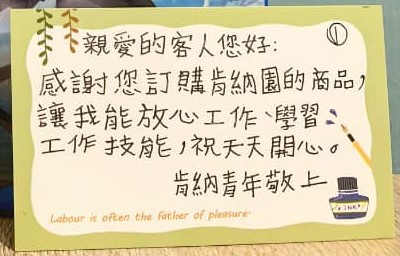 親愛的客人您好:
①
感謝您訂購肯納園的商品,
讓我能放心工作、學習
工作技能,祝天天開心。
肯納青年敬上
Labour is often the father of pleasure.
INK